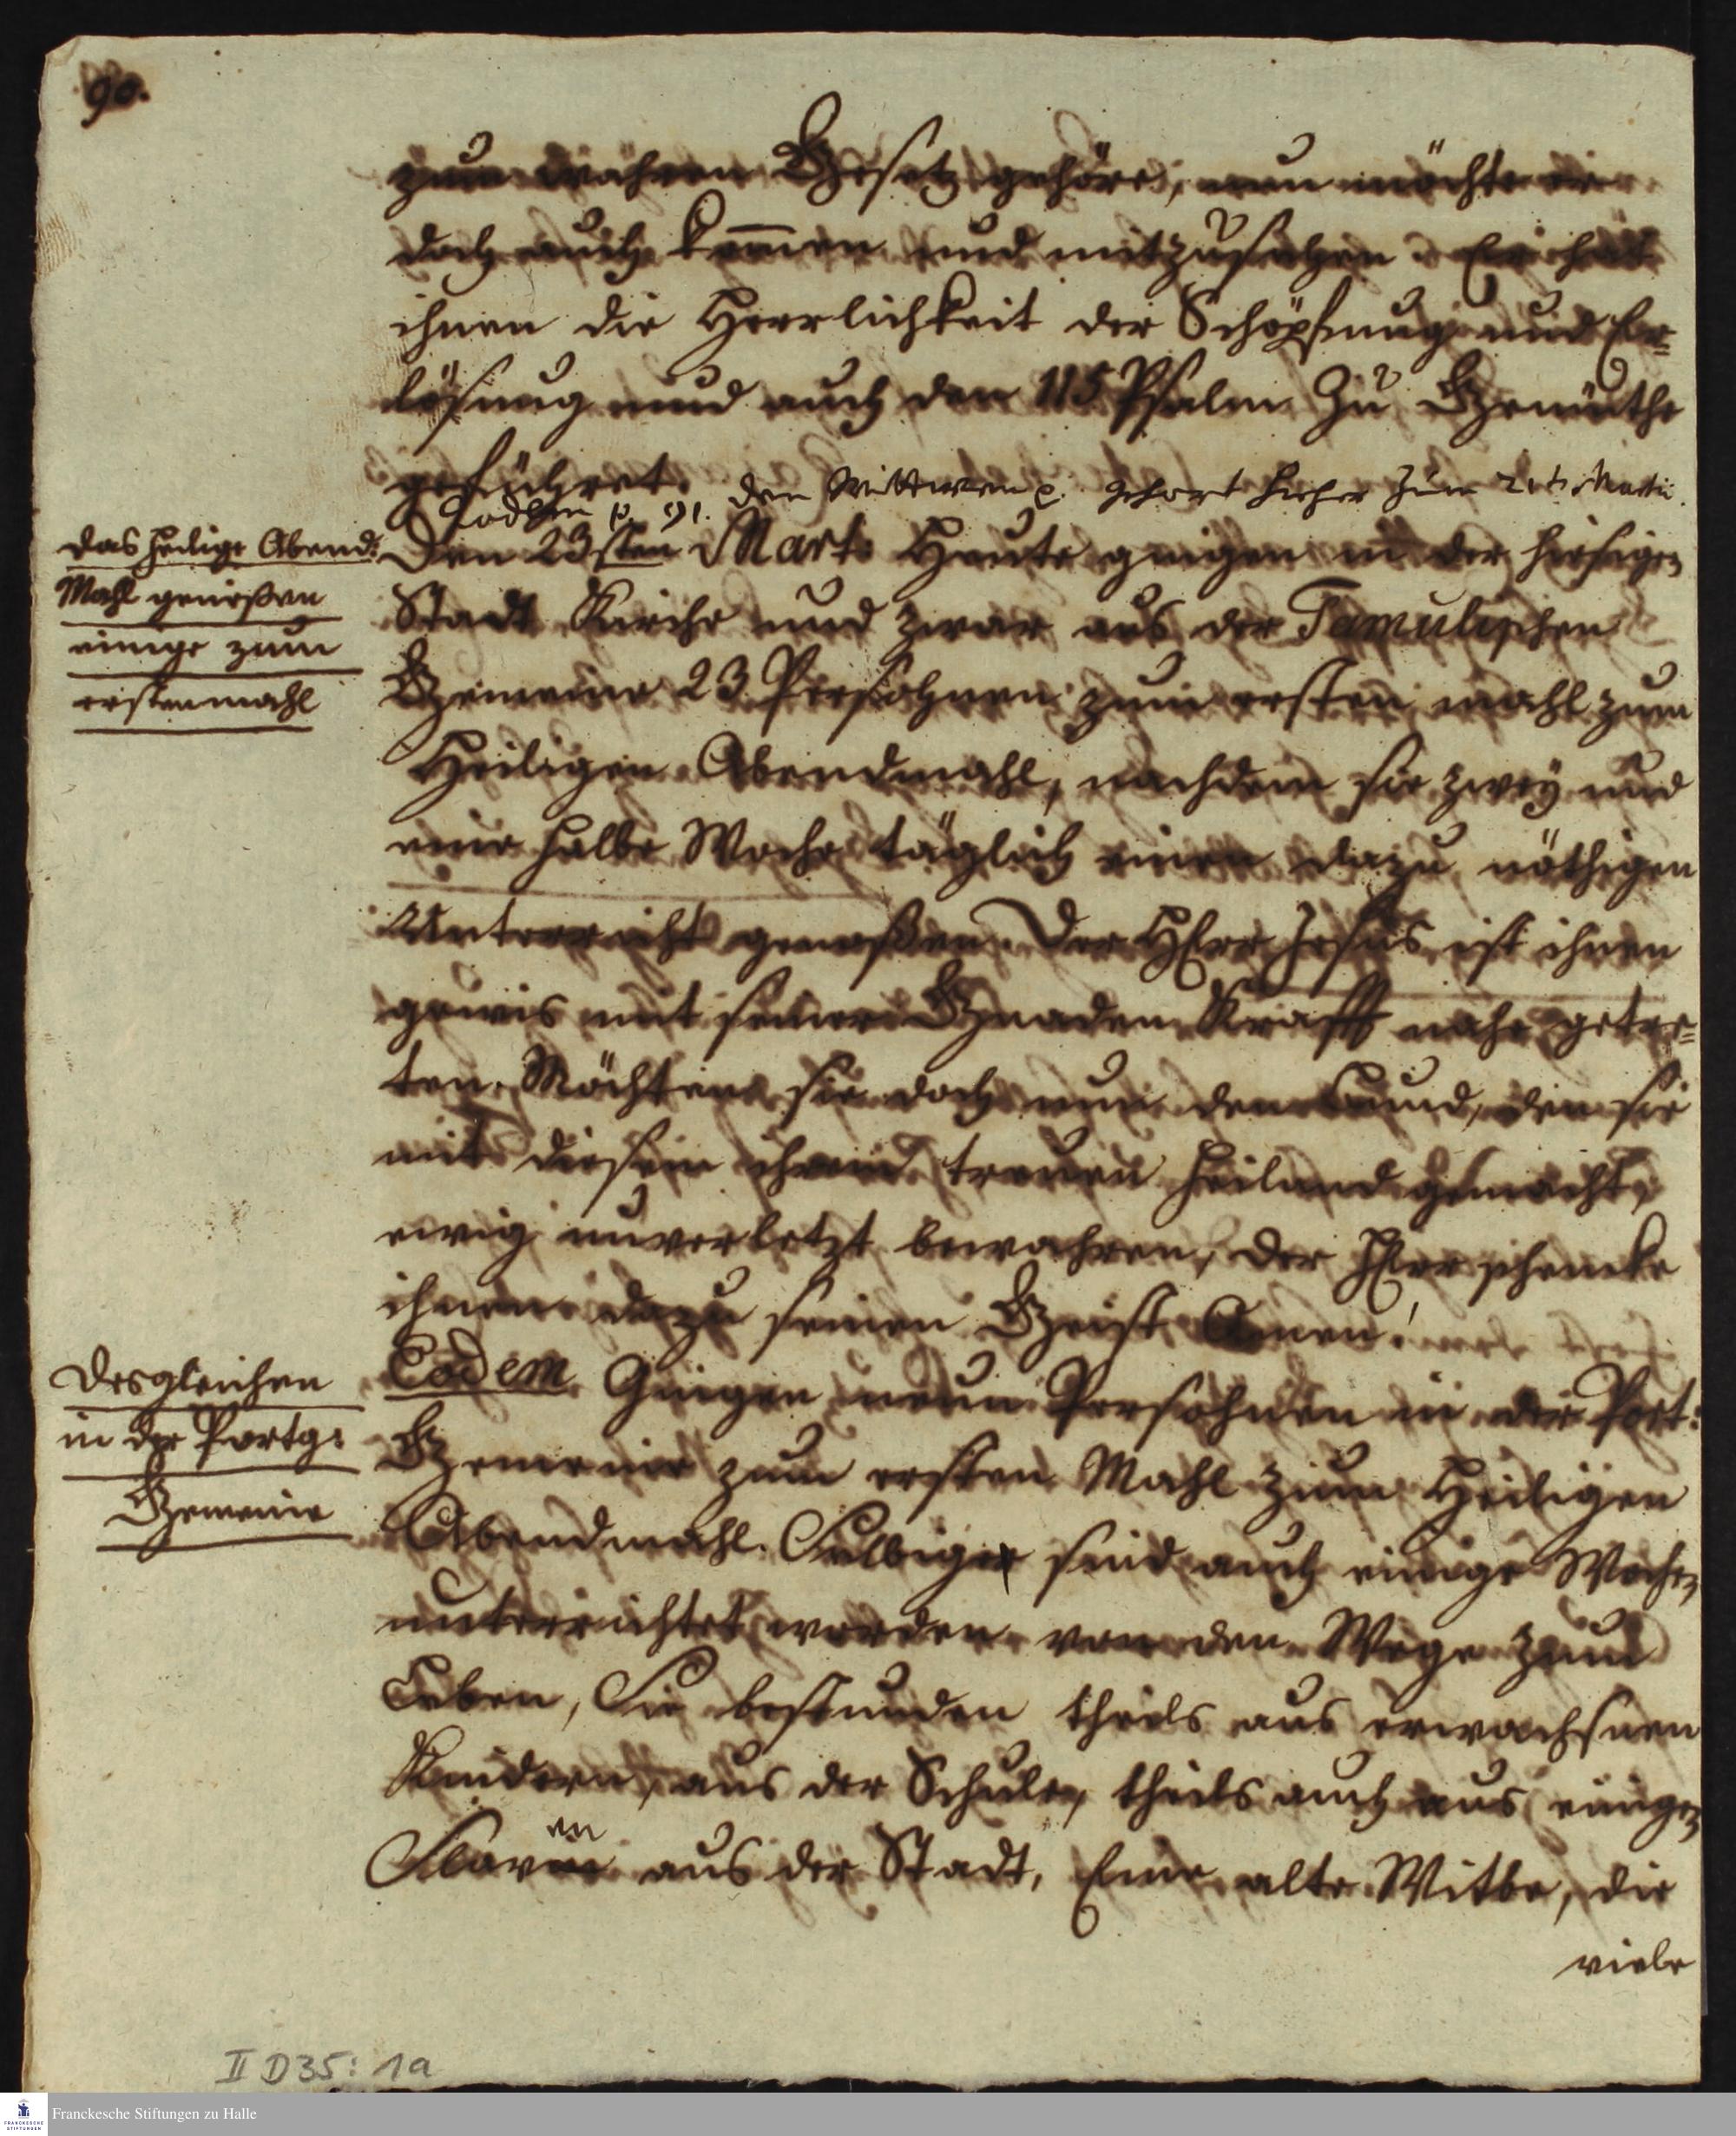 90.
zum wahren Gesetz gehöre, nun möchte er
doch auch kom̅en und mit zusehen. Er hat
ihnen die Herrlichkeit der Schöpfung und Er=
lösung und auch den 115 Psalm Zu Gemüthe
geführet.
p. 91. den Mittwoch gehört hieher zum 21t. Martii.
das heilige Abend:
Mahl genießen
einige zum
erstenmahl
Den 23sten Mart: Heute giengen in der hiesigen
Stadt Kirche und zwar aus der Tamulischen
Gemeine 23 Persohnen zum ersten mahl zum
Heiligen Abendmahl, nachdem sie zwey und
eine halbe Woche täglich einen dazu nöthigen
Unterricht genoßen. Der HErr Jesus ist ihnen
gewis mit seiner Gnaden Krafft nahe getre=
ten. Möchten sie doch nun den Bund, den sie
mit diesem ihrem treuen Heiland gemacht,
ewig unverletzt bewahren, der HErr schencke
ihnen dazu seinen Geist Amen!
Desgleichen
in der Portg:
Gemeine
Eodem Giengen neun Persohnen in der Port:
Gemeine zum ersten Mahl zum Heiligen
Abendmahl. Selbige sind auch einige Wochen
unterrichtet worden von den Wege zum
Leben, Sie bestunden theils aus erwachsnen
Kindern, aus der Schule, theils auch aus einigen
en
Slaven aus der Stadt, Eine alte Witbe, die
viele
II D35: 1a
FRANCKESCHE
STIFTUNGEN
Franckesche Stiftungen zu Halle